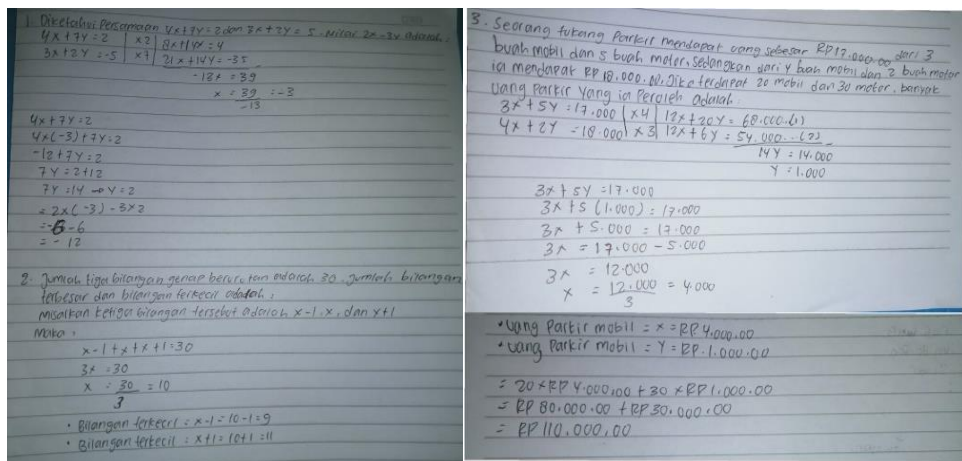 1. Diketahui Persamaan 4x+7y=2 dan 3x+2y=5. Nilai 2x-3y adalah,
4x+7y=2 |x2| 8x+14y=4
3x+2y=-5 |x7| 21x+14y=-35
-13x=39
x=39/-13=-3
4x+7y=2
4x(-3)+7y=2
-12+7y=2
7y=2+12
7y=14→y=2
=2x(-3)-3x2
=-6-6
=-12
2. Jumlah tiga bilangan genap berurutan adalah 30. Jumlah bilangan
terbesar dan bilangan terkecil adalah,
misalkan ketiga bilangan tersebut adalah x-1, x, dan x+1
Maka:
x-1+x+x+1=30
3x=30
x=30/3=10
• Bilangan terkecil=x-1=10-1=9
• Bilangan terkecil=x+1=10+1=11
3. Seorang tukang Parkir mendapat uang sebesar RP17.000.00 dari 3
buah mobil dan 5 buah motor, sedangkan dari 4 buah mobil dan 2 buah motor
ia mendapat RP 18.000.00. Jika terdapat 20 mobil dan 30 motor, banyak
uang parkir yang ia Peroleh adalah.
3x+5y=17.000 |x4| 12x+20y=68.000..(1)
4x+2y=18.000 |x3| 12x+6y=54.000...(2)
14y=14.000
y=1.000
3x+5y=17.000
3x+5(1.000)=17.000
3x+5.000=17.000
3x=17.000-5.000
3x=12.000
x=12.000/3=4.000
• uang Parkir mobil=x=RP4.000.00
• uang Parkir mobil=y=RP.1.000.00
=20xRP4.000,00+30xRP1.000.00
=RP80.000.00+RP30.000.00
=RP110.000,00